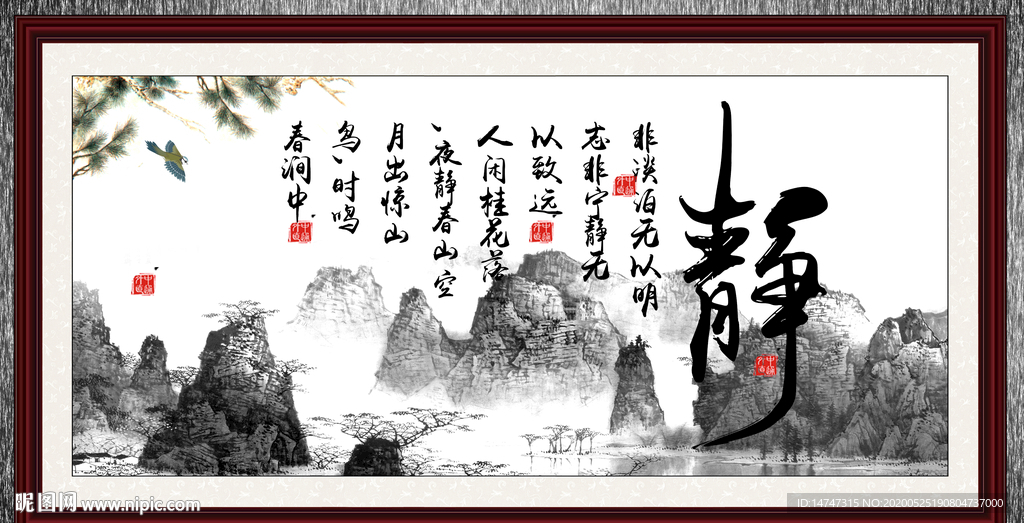 静
非淡泊无以明
志非宁静无
以致远
人闲桂花落
、夜静春山空
月出惊山
鸟、时鸣
春涧中
昵图网 www.nipic.com
ID:14747315 NO:20200525190804737000